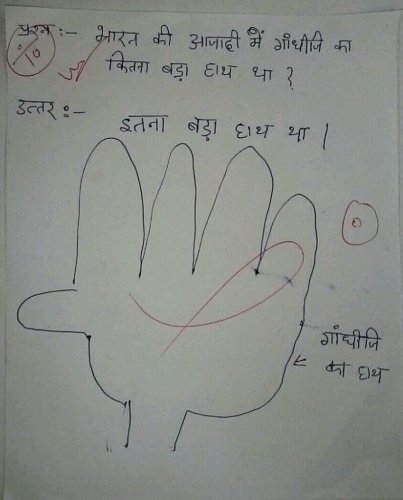 प्रश्न :- भारत की आजादी में गाँधीजि का
कितना बड़ा हाथ था ?
उत्तर :- इतना बड़ा हाथ था |
0
गाँधीजि
का हाथ